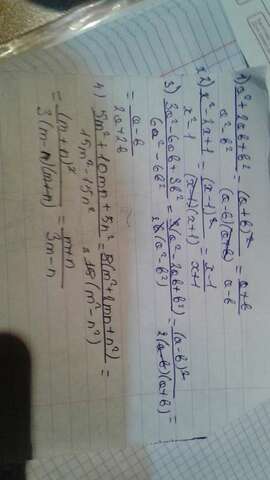 1) a² + 2ab + b² / a² - b² = (a+b)² / (a-b)(a+b) = a+b / a-b
2) x² - 2x + 1 / x² - 1 = (x-1)² / (x-1)(x+1) = x-1 / x+1
3) 3a² - 6ab + 3b² / 6a² - 6b² = 3(a² - 2ab + b²) / 6(a² - b²) = (a-b)² / 2(a-b)(a+b) =
= a-b / 2a+2b
4) 5m² + 10mn + 5n² / 15m² - 15n² = 5(m² + 2mn + n²) / 15(m² - n²) =
= (m+n)² / 3(m-n)(m+n) = m+n / 3m-n